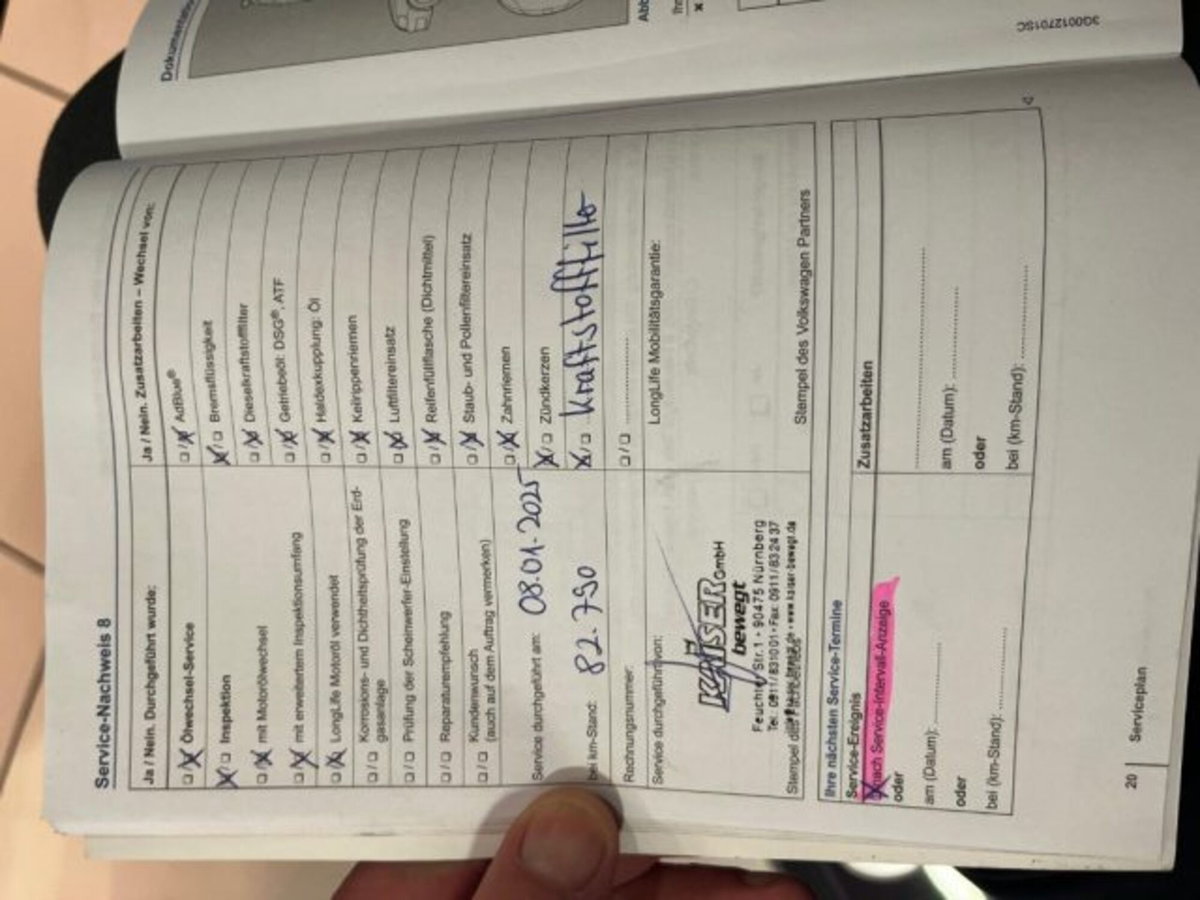 Service-Nachweis 8
Ja / Nein. Durchgeführt wurde:
☐/☒ Ölwechsel-Service
☒/☐ Inspektion
☐/☒ mit Motorölwechsel
☐/☒ mit erweitertem Inspektionsumfang
☐/☒ LongLife Motoröl verwendet
☐/☐ Korrosions- und Dichtheitsprüfung der Erd-
gasanlage
☐/☐ Prüfung der Scheinwerfer-Einstellung
☐/☐ Reparaturempfehlung
☐/☐ Kundenwunsch
(auch auf dem Auftrag vermerken)
Service durchgeführt am: 08.01.2025
bei km-Stand: 82.790
Rechnungsnummer:
Service durchgeführt von:
KAISER GmbH
bewegt
Feuchter Str. 1 • 90475 Nürnberg
Tel.: 0911/831001 • Fax: 0911/832437
www.kaiser-bewegt.de
Stempel des
Ja / Nein. Zusatzarbeiten – Wechsel von:
☐/☒ AdBlue®
☒/☐ Bremsflüssigkeit
☐/☒ Dieselkraftstofffilter
☐/☒ Getriebeöl: DSG®, ATF
☐/☒ Haldexkupplung: Öl
☐/☒ Keilrippenriemen
☐/☒ Luftfiltereinsatz
☐/☒ Reifenfüllflasche (Dichtmittel)
☐/☒ Staub- und Pollenfiltereinsatz
☐/☒ Zahnriemen
☒/☐ Zündkerzen
☒/☐ Kraftstofffilter
☐/☐
LongLife Mobilitätsgarantie:
Stempel des Volkswagen Partners
Ihre nächsten Service-Termine
Service-Ereignis
☒ nach Service-Intervall-Anzeige
oder
am (Datum):
oder
bei (km-Stand):
Zusatzarbeiten
am (Datum):
oder
bei (km-Stand):
20 | Serviceplan
Dokumentation
Abb
Ihr
3G0012701SC